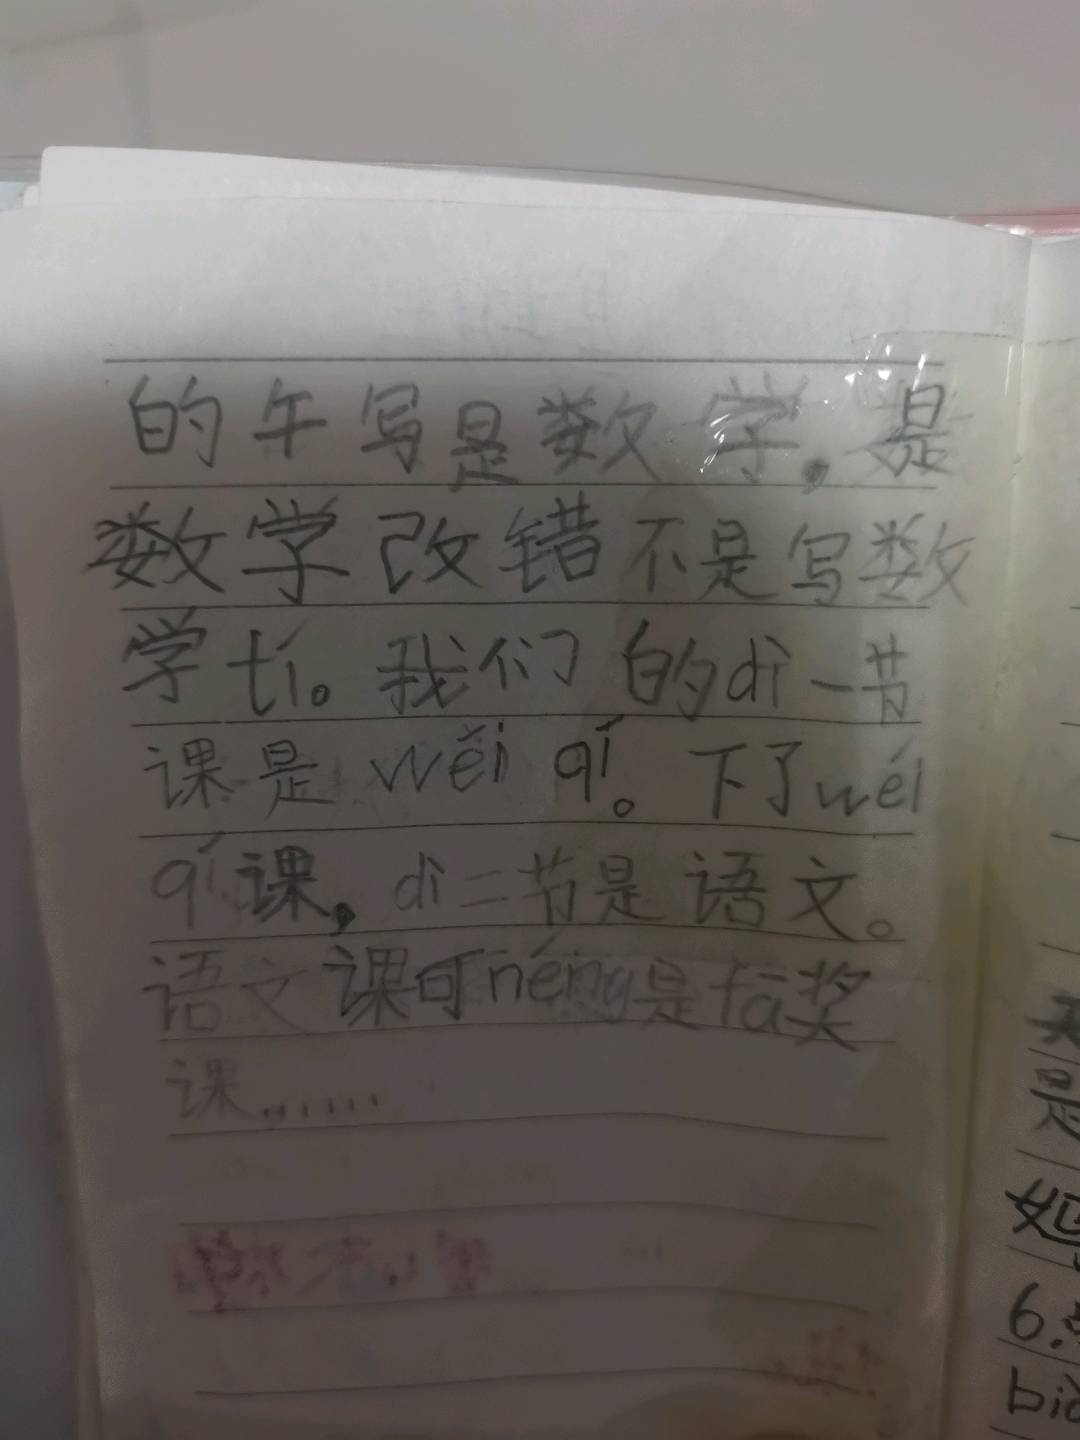 的午写是数学，是
数学改错不是写数
学tí。我们的dì一节
课是wěi qí。下了wéi
qí课，dì二节是语文。
语文课可néng是fā奖
课……
是
6.